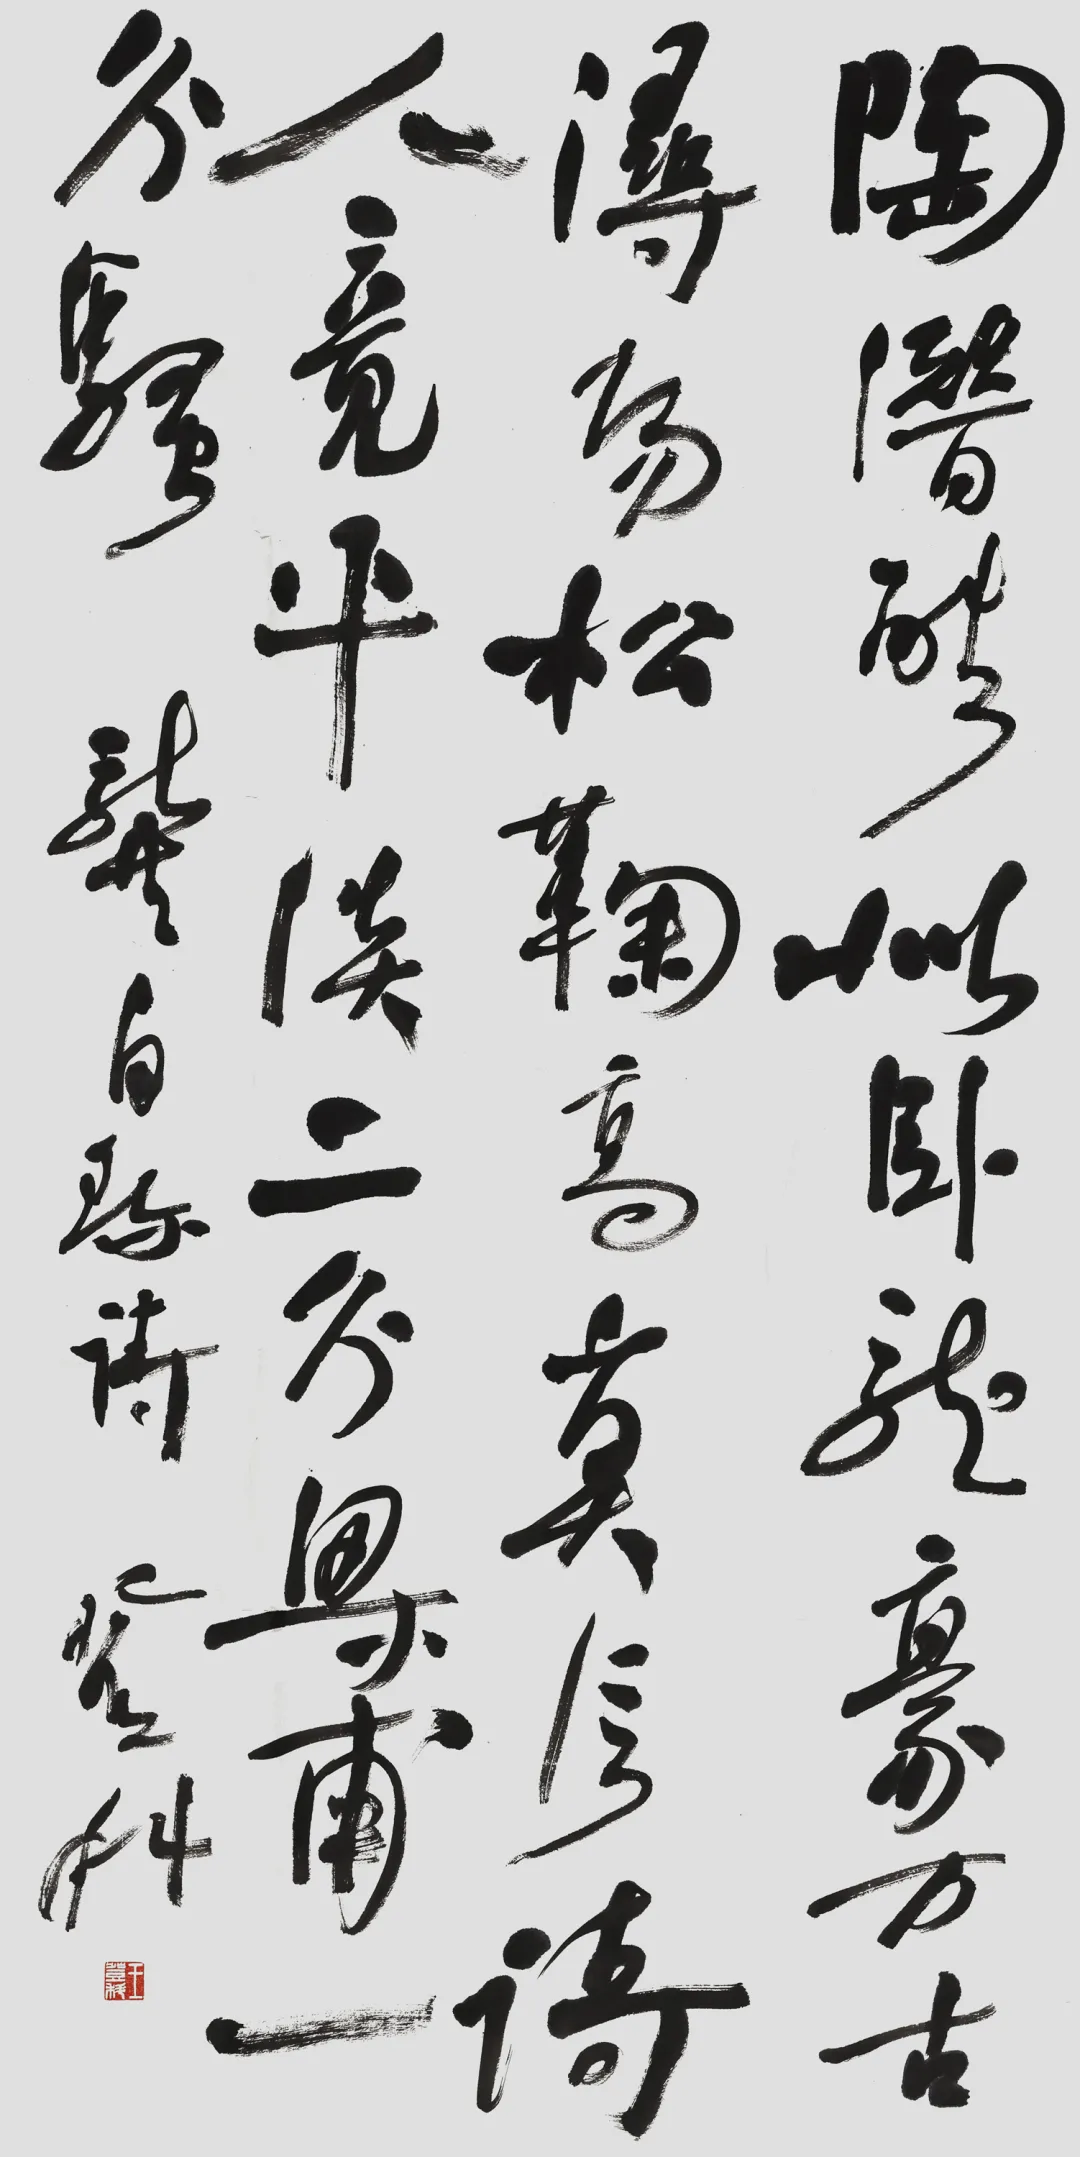 陶潛酷似卧龍豪万古
潯陽松鞠高莫信詩
人竟平淡二分梁甫一
分騷 龔自珍詩 登科
王登科